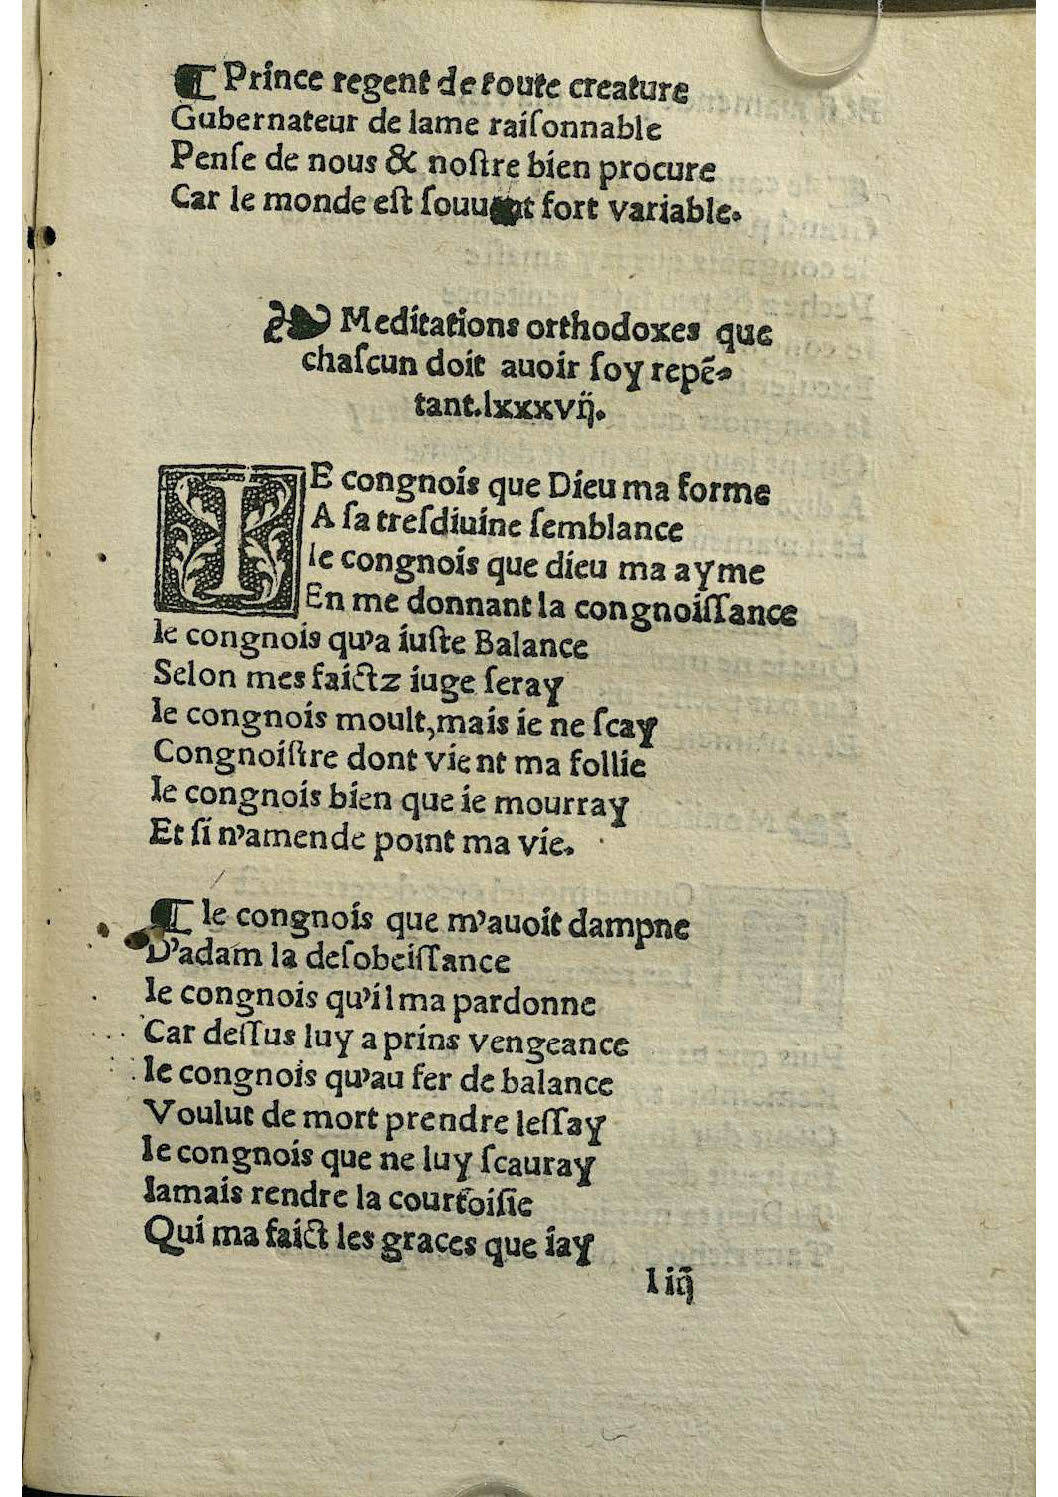 ¶ Prince regent de toute creature
Gubernateur de lame raiſonnable
Penſe de nous & noſtre bien procure
Car le monde eſt fort variable.
❧ Meditations orthodoxes que
chaſcun doit auoir ſoy repẽ-
tant.lxxxvij.
IE congnois que Dieu ma forme
A ſa treſdiuine ſemblance
Ie congnois que dieu ma ayme
En me donnant la congnoiſſance
Ie congnois qu'a iuſte Balance
Selon mes faictz iuge ſeray
Ie congnois moult,mais ie ne ſcay
Congnoiſtre dont vient ma follie
Ie congnois bien que ie mourray
Et ſi n'amende point ma vie.
¶ Ie congnois que m'auoit dampne
D'adam la deſobeiſſance
Ie congnois qu'il ma pardonne
Car deſſus luy a prins vengeance
Ie congnois qu'au fer de balance
Voulut de mort prendre leſſay
Ie congnois que ne luy ſcauray
Iamais rendre la courtoiſie
Qui ma faict les graces que iay
I iij